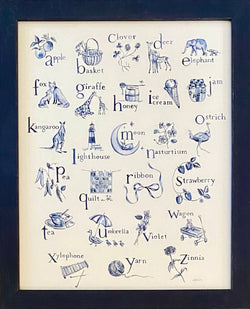 apple basket Clover deer elephant
fox giraffe honey ice cream jam
kangaroo lighthouse moon nasturtium ostrich
Pea quilt ribbon Strawberry
tea umbrella Violet Wagon
Xylophone Yarn Zinnia